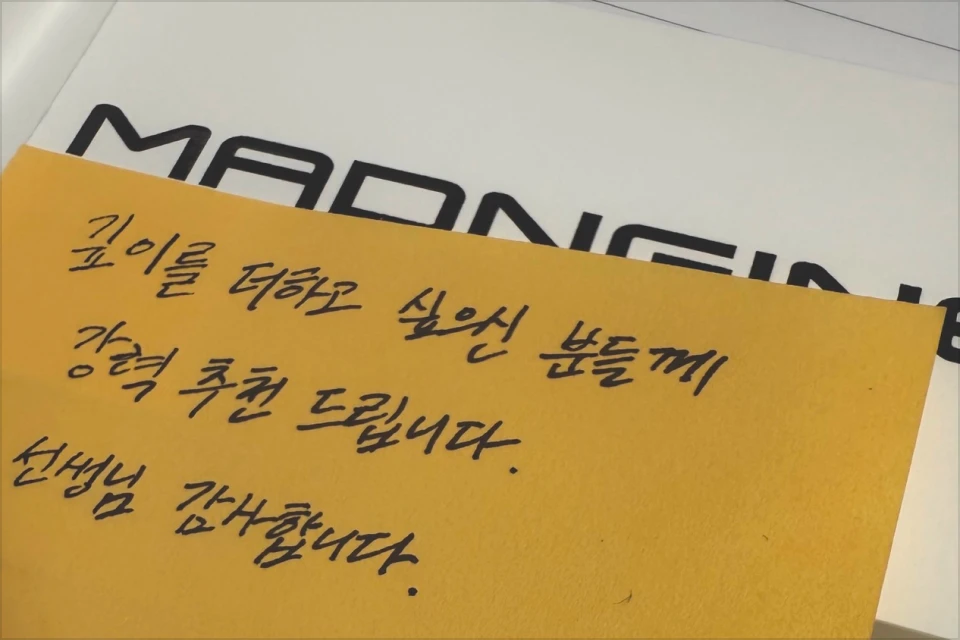 MADNGINE
깊이를 더하고 싶으신 분들께
강력 추천 드립니다.
선생님 감사합니다.